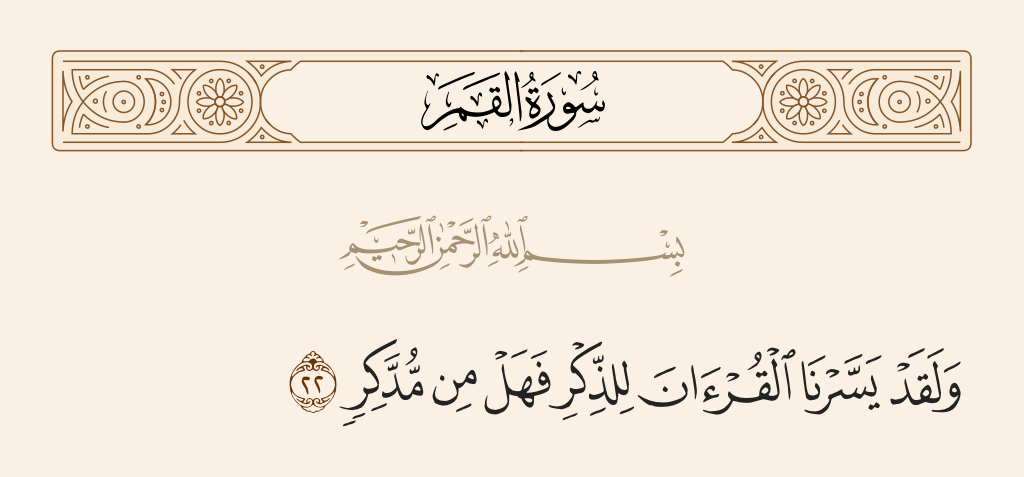 سُورَةُ القَمَرِ
بِسْمِ ٱللَّهِ ٱلرَّحْمَٰنِ ٱلرَّحِيمِ
وَلَقَدْ يَسَّرْنَا ٱلْقُرْءَانَ لِلذِّكْرِ فَهَلْ مِن مُّدَّكِرٍ ٢٢